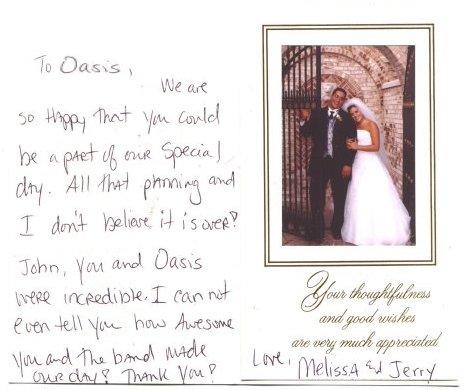 To Oasis,
We are
so Happy that you could
be a part of our special
day. All that planning and
I don't believe it is over!
John, you and Oasis
were incredible. I can not
even tell you how Awesome
you and the band made
our day! Thank you!
Your thoughtfulness
and good wishes
are very much appreciated
Love, Melissa & Jerry